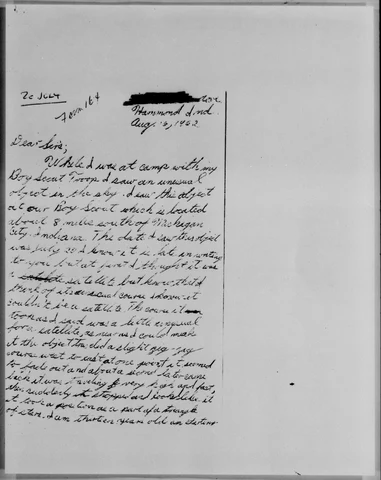 20 JULY
Hammond Ind.
Aug. 6, 1962
Dear Sirs;
While I was at camp with my
Boy Scout Troop I saw an unusual
object in the sky. I saw this object
at our Boy Scout which is located
about 8 miles south of Michigan
City, Indiana. The date I saw this object
was July 20 I know it is late in writing
to you but at first I thought it was
a satellite but know that I
think of its usual course I know it
couldn't be a satellite. The course it
took as I said was a little unusual
for a satellite, as near as I could make
it the object traveled a slight zig-zag
course west to east at one point it seemed
to fade out and about a second later came
back it was traveling very high and fast,
then suddenly it stopped and looked like it
it took a position as a part of a triangle
of stars. I am thirteen years old an